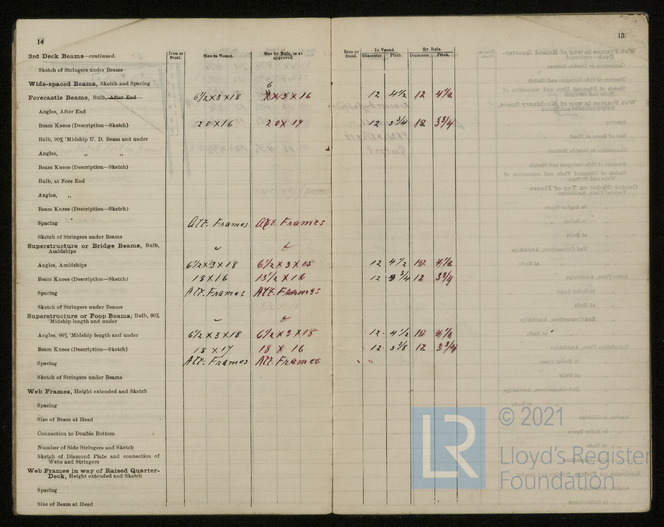 14
15
Iron or Steel.
Size in Vessel.
Size by Rule, or as approved.
Iron or Steel.
In Vessel.
By Rule.
Diameter.
Pitch.
Diameter.
Pitch.
3rd Deck Beams—continued.
Sketch of Stringers under Beams
Wide-spaced Beams, Sketch and Spacing
Forecastle Beams, Bulb, After End 6½ x 3 x 18 6 x 3 x 16 12 4½ 12 4½
Angles, After End
Beam Knees (Description—Sketch) 20 x 16 20 x 17 12 3¾ 12 3¾
Bulb, 90% 'Midship U. D. Beam and under
Angles, „ „
Beam Knees (Description—Sketch)
Bulb, at Fore End
Angles, „
Beam Knees (Description—Sketch)
Spacing Alt. Frames Alt. Frames
Sketch of Stringers under Beams
Superstructure or Bridge Beams, Bulb,
Amidships
Angles, Amidships 6½ x 3 x 18 6½ x 3 x 18 12 4½ 12 4½
Beam Knees (Description—Sketch) 18 x 16 12 3¾ 12 3¾
Spacing Alt. Frames Alt. Frames
Sketch of Stringers under Beams
Superstructure or Poop Beams, Bulb, 90%
'Midship length and under
Angles, 90% 'Midship length and under 6½ x 3 x 18 6½ x 3 x 18 12 4½ 12 4½
Beam Knees (Description—Sketch) 18 x 17 18 x 16 12 3⅜ 12 3¾
Spacing Alt. Frames Alt. Frames
Sketch of Stringers under Beams
Web Frames, Height extended and Sketch
Spacing
Size of Beam at Head
Connection to Double Bottom
Number of Side Stringers and Sketch
Sketch of Diamond Plate and connection of
Webs and Stringers
Web Frames in way of Raised Quarter-
Deck, Height extended and Sketch
Spacing
Size of Beam at Head
LR
© 2021
Lloyd's Register
Foundation